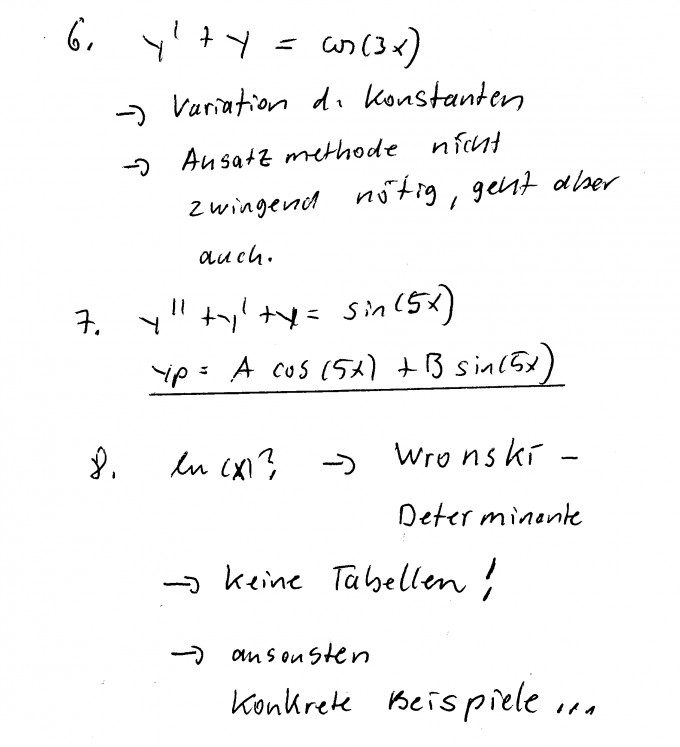 6. y' + y = cos(3x)
→ Variation d. Konstanten
→ Ansatzmethode nicht
zwingend nötig, geht aber
auch.
7. y'' + y' + y = sin(5x)
yp = A cos(5x) + B sin(5x)
8. ln(x)? → Wronski-
Determinante
→ keine Tabellen!
→ ansonsten
Konkrete Beispiele...